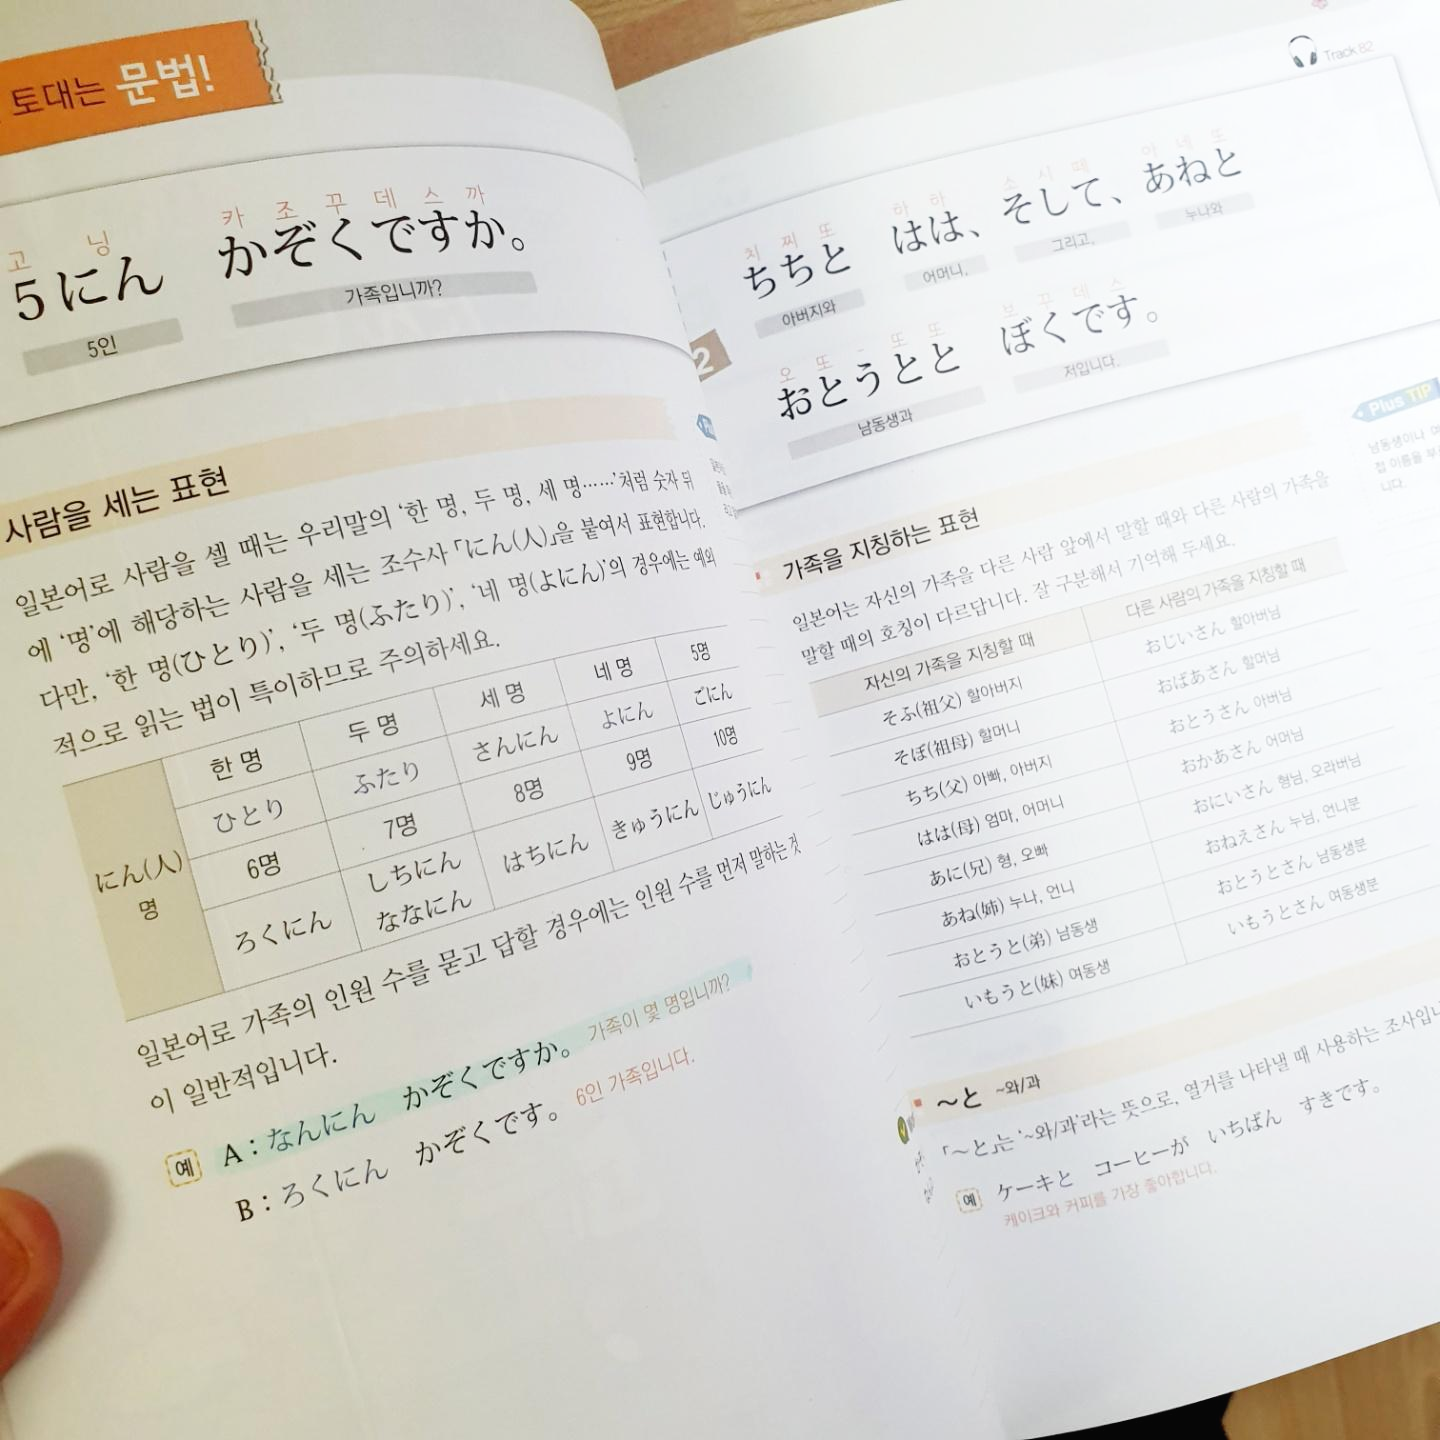 토대는 문법!
고 닝 카 조 꾸 데 스 까
5にん かぞくですか。
5인 가족입니까?
사람을 세는 표현
일본어로 사람을 셀 때는 우리말의 ‘한 명, 두 명, 세 명……’처럼 숫자 뒤
에 ‘명’에 해당하는 사람을 세는 조수사 「にん(人)」을 붙여서 표현합니다.
다만, ‘한 명(ひとり)’, ‘두 명(ふたり)’, ‘네 명(よにん)’의 경우에는 예외
적으로 읽는 법이 특이하므로 주의하세요.
にん(人)
명
한 명 두 명 세 명 네 명 5명
ひとり ふたり さんにん よにん ごにん
6명 7명 8명 9명 10명
ろくにん しちにん はちにん きゅうにん じゅうにん
ななにん
일본어로 가족의 인원 수를 묻고 답할 경우에는 인원 수를 먼저 말하는 것
이 일반적입니다.
예 A : なんにん かぞくですか。 가족이 몇 명입니까?
B : ろくにん かぞくです。 6인 가족입니다.
Track 82
치 찌 또 하 하 소 시 떼 아 네 또
ちちと はは、 そして、 あねと
아버지와 어머니, 그리고, 누나와
2
오 또 - 또 또 보 꾸 데 스
おとうとと ぼくです。
남동생과 저입니다.
Plus TIP
남동생이나 여
접 이름을 부
니다.
가족을 지칭하는 표현
일본어는 자신의 가족을 다른 사람 앞에서 말할 때와 다른 사람의 가족을
말할 때의 호칭이 다르답니다. 잘 구분해서 기억해 두세요.
자신의 가족을 지칭할 때 다른 사람의 가족을 지칭할 때
そふ(祖父) 할아버지 おじいさん 할아버님
そぼ(祖母) 할머니 おばあさん 할머님
ちち(父) 아빠, 아버지 おとうさん 아버님
はは(母) 엄마, 어머니 おかあさん 어머님
あに(兄) 형, 오빠 おにいさん 형님, 오라버님
あね(姉) 누나, 언니 おねえさん 누님, 언니분
おとうと(弟) 남동생 おとうとさん 남동생분
いもうと(妹) 여동생 いもうとさん 여동생분
~と ~와/과
「~と」는 ‘~와/과’라는 뜻으로, 열거를 나타낼 때 사용하는 조사입니
예 ケーキと コーヒーが いちばん すきです。
케이크와 커피를 가장 좋아합니다.